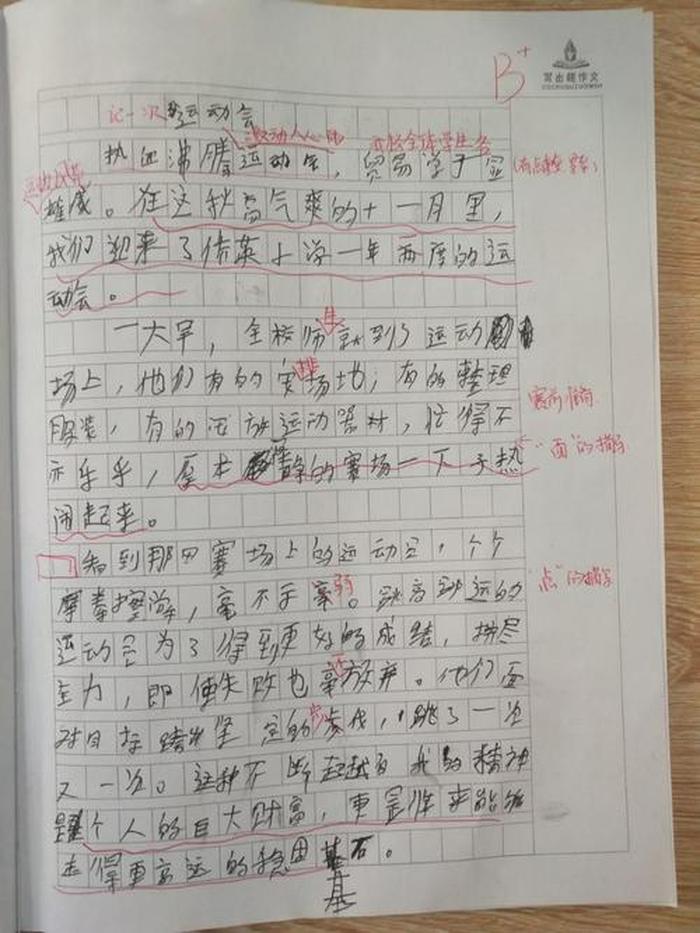 B+
写出翘作文
记一次运动会
激动人心的
热血沸腾运动会,贸易学子显
雄威。在这秋高气爽的十一月里,
我们迎来了倍英小学一年两度的运
动会。
一大早,全校师生就到了运动
场上,他们有的安排场地;有的整理
赛前准备
服装,有的正放运动器材,忙得不
亦乐乎,原本静的赛场一下子热
"面"的描写
闹起来。
看到那四赛场上的运动员,个个
摩拳擦掌,毫不示弱。跳高跳远的
"点"的描写
运动员为了得到更好的成绩,拼尽
全力,即使失败也不放弃。他们面
对目标踏出坚定的步伐,跳了一次
又一次。这种不断超越自我的精神
是个人的巨大财富,更是将来能够
走得更高远的稳固基石。
基